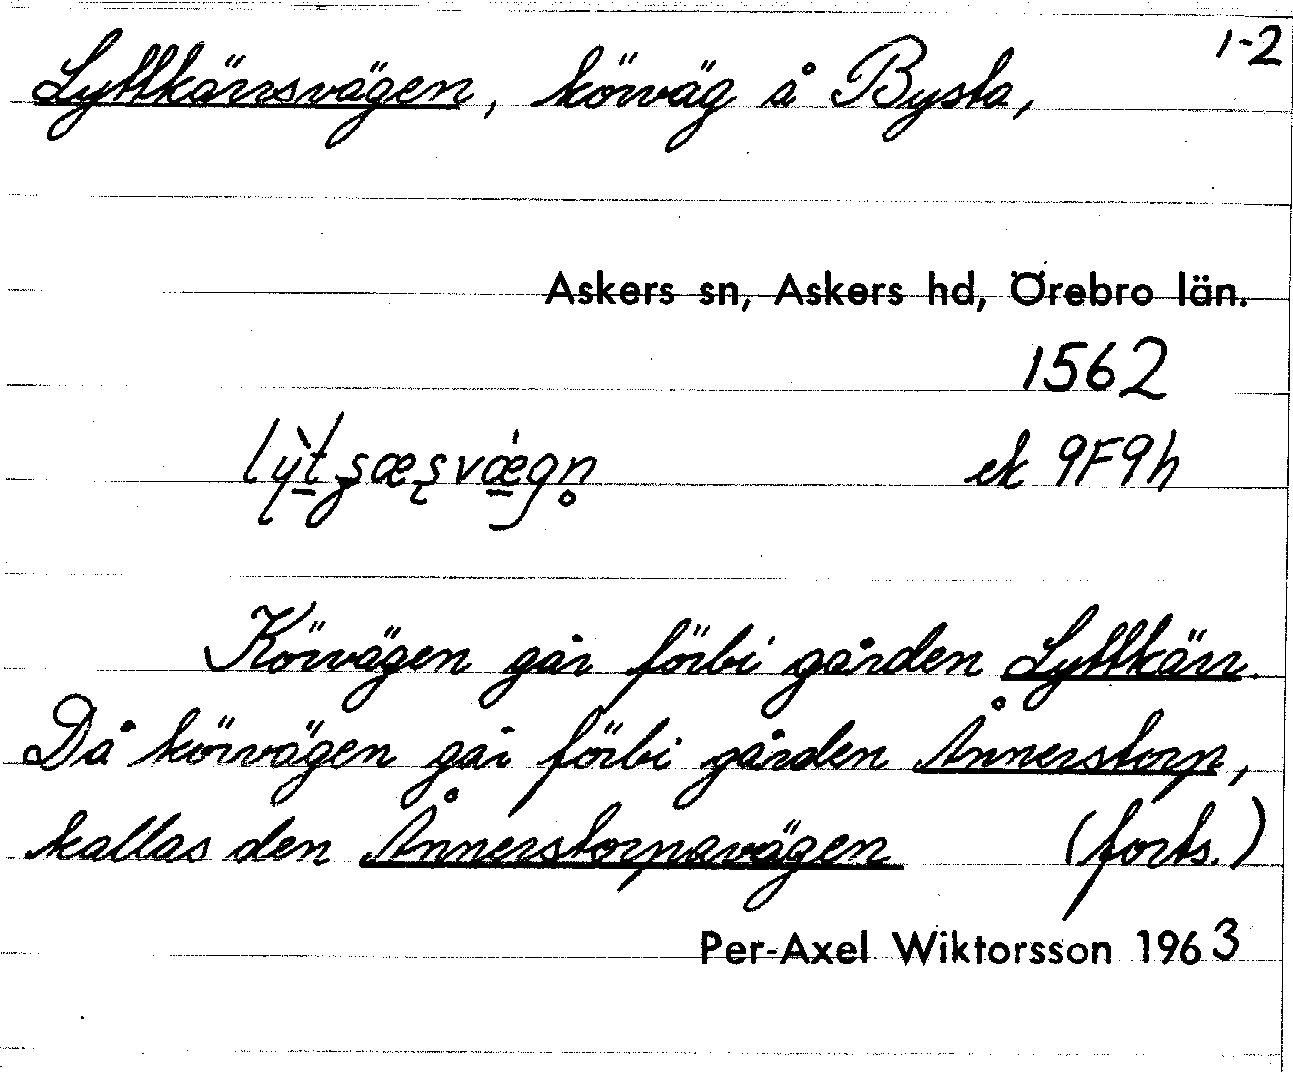 1-2
Lyttkärrsvägen, körväg å Bysta,
Askers sn, Askers hd, Örebro län.
1562
ek 9F9h
Körvägen går förbi gården Lyttkärr.
Då körvägen går förbi gården Ånnerstorp,
kallas den Ånnerstorpavägen (forts.)
Per-Axel Wiktorsson 1963